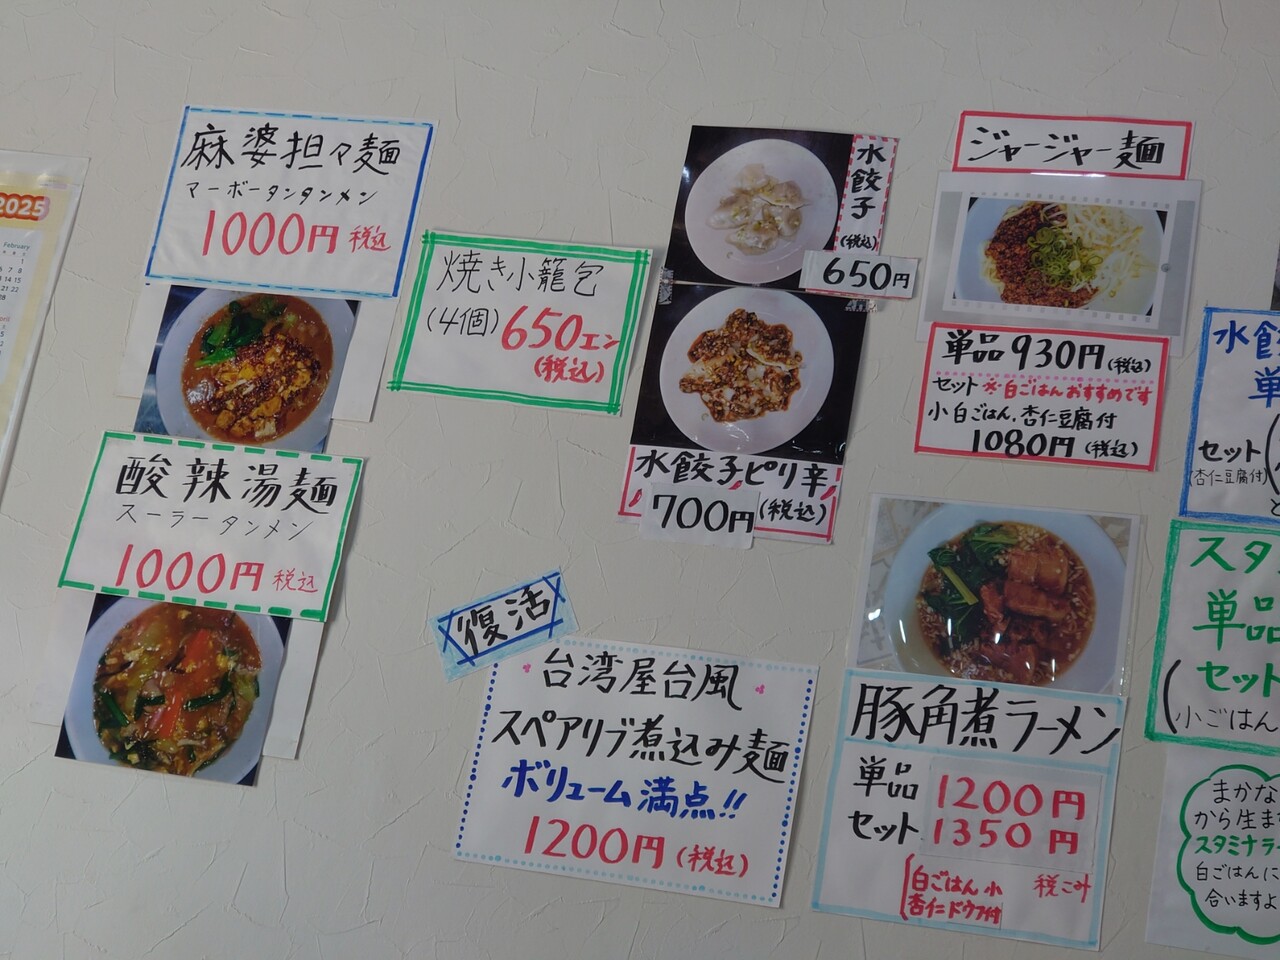 2025
February
麻婆担々麺
マーボータンタンメン
1000円 税込
酸辣湯麺
スーラータンメン
1000円 税込
焼き小籠包
(4個) 650エン
(税込)
水餃子
(税込)
650円
水餃子ピリ辛
700円 (税込)
復活
台湾屋台風
スペアリブ煮込み麺
ボリューム満点!!
1200円 (税込)
ジャージャー麺
単品 930円 (税込)
セット ※白ごはんおすすめです
小白ごはん、杏仁豆腐付
1080円 (税込)
豚角煮ラーメン
単品 1200円
セット 1350円
白ごはん小 税こみ
杏仁ドウフ付
水餃
単
セット
(杏仁豆腐付)
スタ
単品
セット
(小ごはん
まかな
から生ま
スタミナラー
白ごはんに
合いますよ